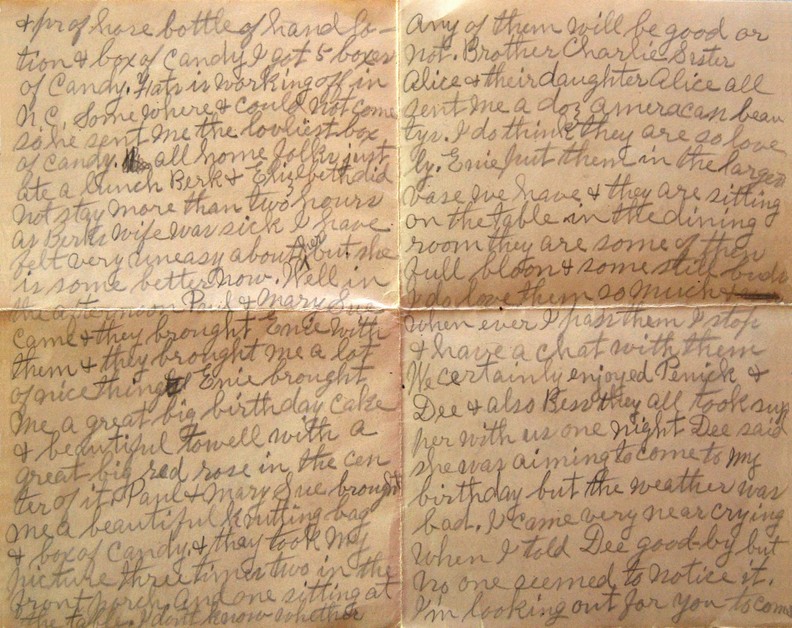 & pr of hose bottle of hand lo-
tion & box of candy I got 5 boxes
of candy. Fats is working off in
N.C. Some where & could not come
so he sent me the lovliest box
of candy. all home folks just
ate a lunch Berk & Elizebeth did
not stay more than two hours
as Berks wife was sick I have
felt very uneasy about her but she
is some better now. Well in
the afternoon Paul & Mary Sue
came & they brought Enie with
them & they brought me a lot
of nice things Enie brought
me a great big birthday cake
& beautiful towell with a
great big red rose in the cen
ter of it. Paul & Mary Sue brought
me a beautiful knitting bag
& box of candy. & they took my
picture three times two in the
front porch and one sitting at
the table. I dont know whether
any of them will be good or
not. Brother Charlie Sister
Alice & their daughter Alice all
sent me a doz ameracan beau
tys. I do think they are so love
ly. Enie put them in the larges
vase we have & they are sitting
on the table in the dining
room they are some of them
full bloon & some still buds
I do love them so much &
when ever I pass them I stop
& have a chat with them
We certainly enjoyed Penick &
Dee & also Bess they all took sup
per with us one night Dee said
she was aiming to come to my
birthday but the weather was
bad. I came very near crying
when I told Dee good-by but
no one seemed to notice it.
I'm looking out for you to come